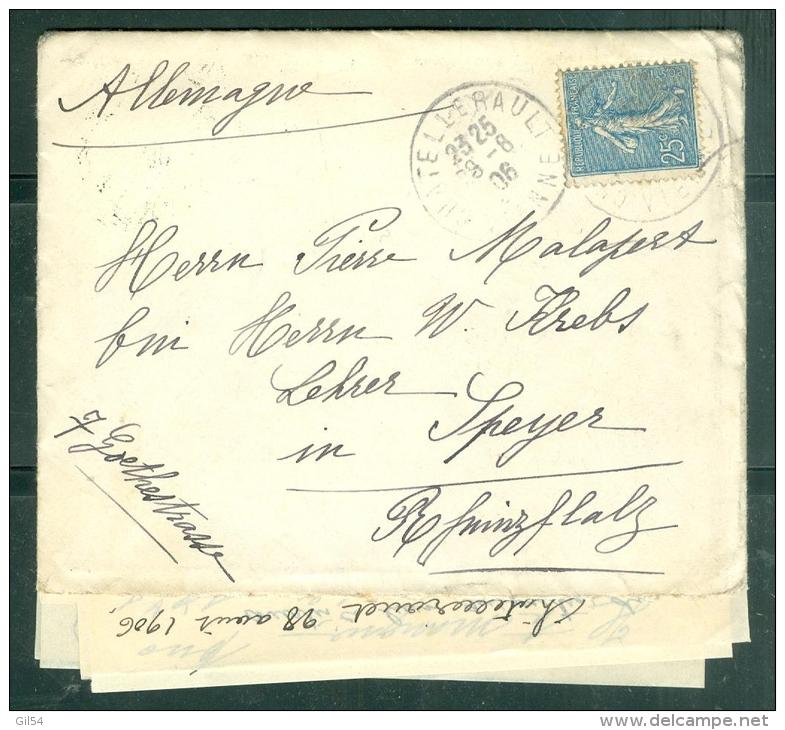 Allemagne
CHATELLERAULT
VIENNE
23 25
28 - 8
06
REPUBLIQUE FRANÇAISE
25c
Herrn Pierre Malapert
bei Herrn W. Krebs
Lehrer
in Speyer
Rheinpfalz
7 Goethestrasse
Châtellerault 28 août 1906,
Gil54
www.delcampe.net